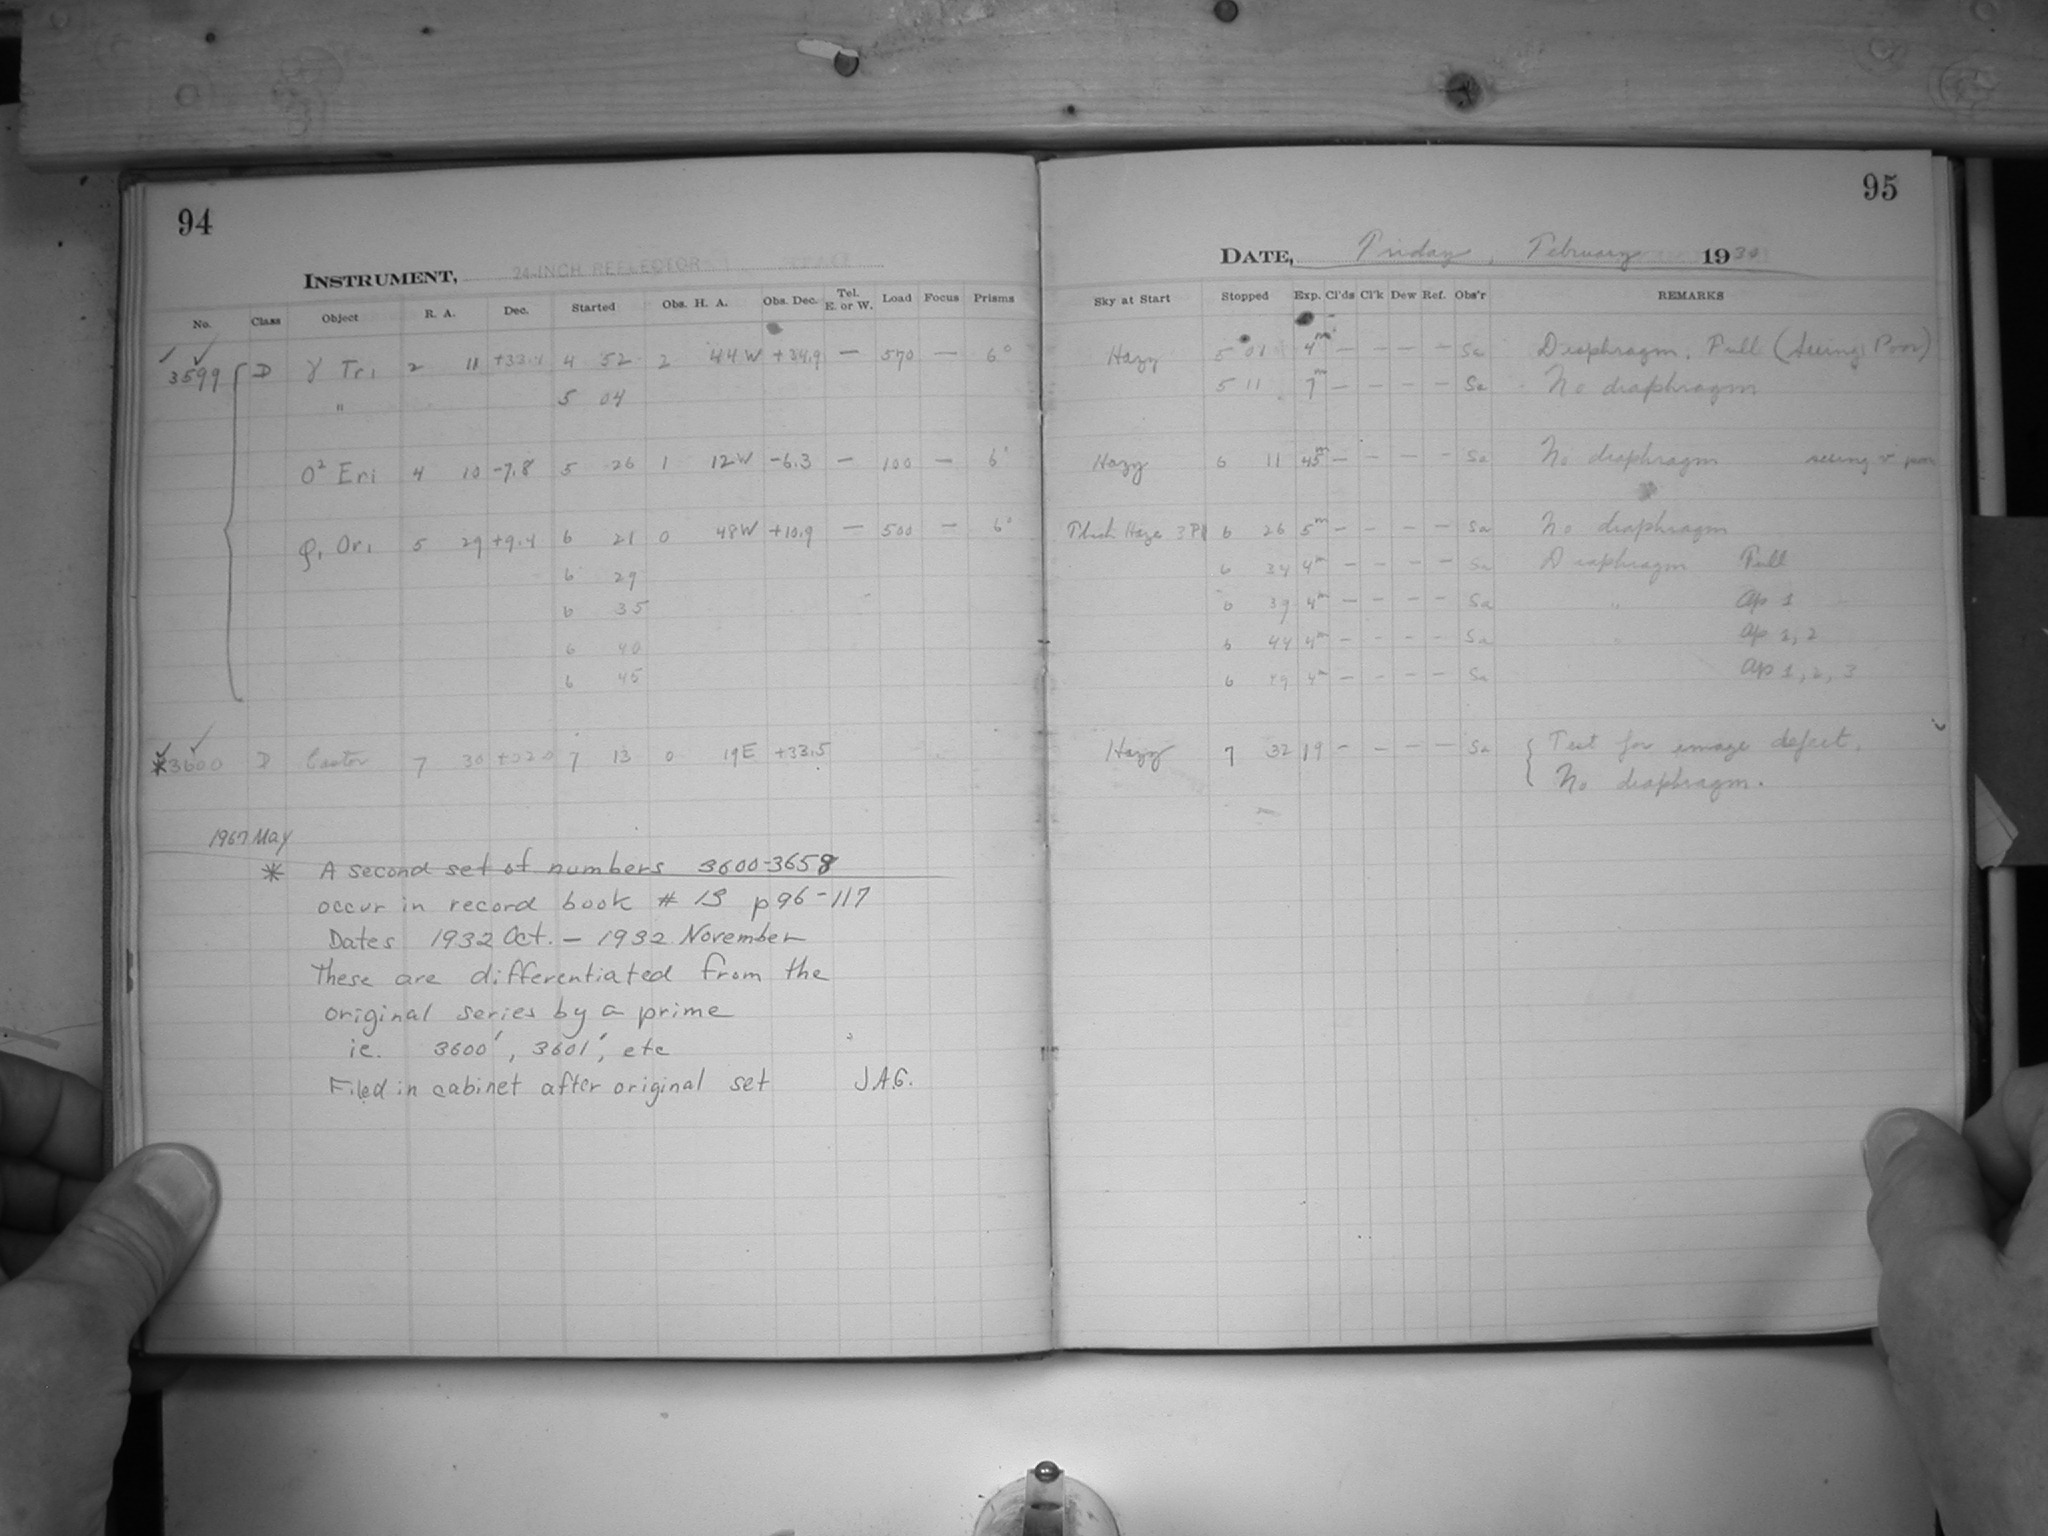 94
INSTRUMENT, 24-INCH REFLECTOR
No. Class Object R. A. Dec. Started Obs. H. A. Obs. Dec. Tel. E. or W. Load Focus Prisms
3599 D γ Tri 2 11 +33.4 4 52 2 44 W +34.9 — 570 — 6°
" 5 04
O² Eri 4 10 -7.8 5 26 1 12 W -6.3 — 100 — 6°
φ, Ori 5 29 +9.4 6 21 0 48 W +10.9 — 500 — 6°
6 29
6 35
6 40
6 45
*3600 D Castor 7 30 +32.0 7 13 0 19 E +33.5
1967 May
* A second set of numbers 3600-3658
occur in record book # 13 p 96-117
Dates 1932 Oct. - 1932 November
These are differentiated from the
original series by a prime
ie. 3600', 3601', etc
Filed in cabinet after original set J.A.G.
95
DATE, Friday, February 1930
Sky at Start Stopped Exp. Cl'ds Cl'k Dew Ref. Obs'r REMARKS
Hazy 5 01 4m — — — — Sa Diaphragm, Full (Seeing Poor)
5 11 7m — — — — Sa No diaphragm
Hazy 6 11 45m — — — — Sa No diaphragm seeing v poor
Thick Haze 6 26 5m — — — — Sa No diaphragm
6 34 4m — — — — Sa Diaphragm Full
6 39 4m — — — — Sa " Ap 1
6 44 4m — — — — Sa " Ap 1, 2
6 49 4m — — — — Sa Ap 1, 2, 3
Hazy 7 32 19 — — — — Sa { Test for image defect.
No diaphragm.